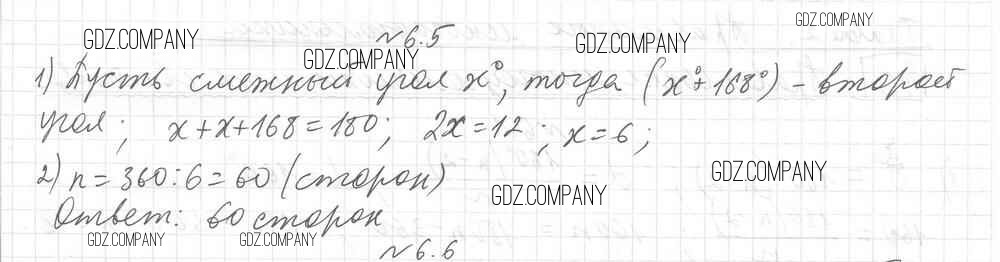 №6.5
1) Пусть смежный угол x°, тогда (x°+168°) - второй
угол; x+x+168=180; 2x=12; x=6;
2) n=360:6=60 (сторон)
Ответ: 60 сторон
№6.6
GDZ.COMPANY
GDZ.COMPANY
GDZ.COMPANY
GDZ.COMPANY
GDZ.COMPANY
GDZ.COMPANY
GDZ.COMPANY
GDZ.COMPANY